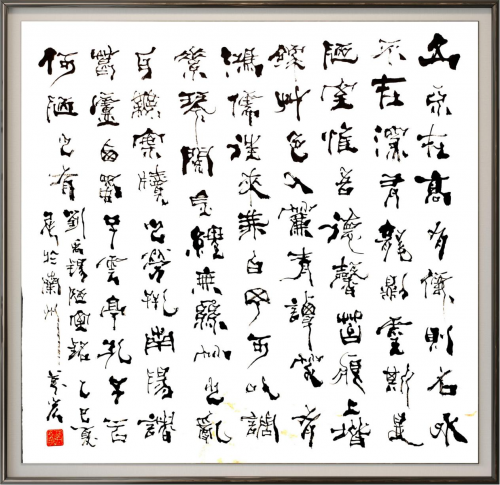 山不在高有僊則名水
不在深有龍則靈斯是
陋室惟吾德馨苔痕上階
綠艸色入簾青談笑有
鴻儒往來無白丁可以調
素琴閱金經無絲竹之亂
耳無案牘之勞形南陽諸
葛廬西蜀子雲亭孔子云
何陋之有
劉禹錫陋室銘乙巳夏
書於蘭州